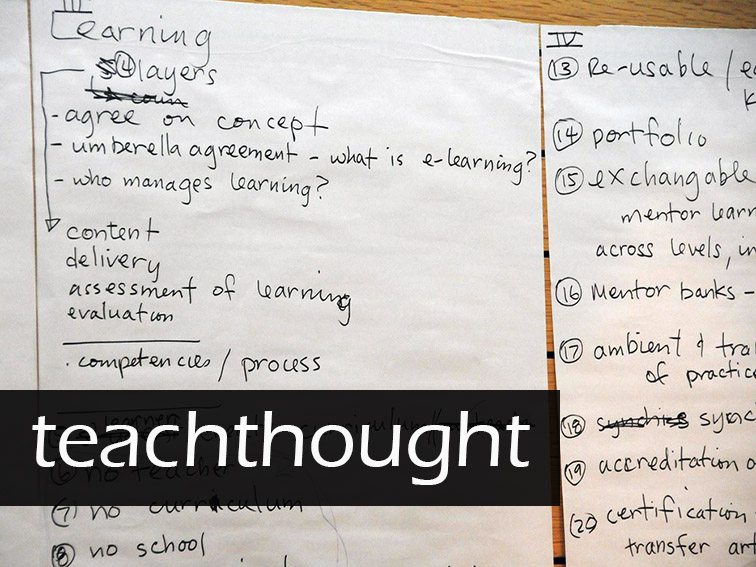 III
Learning
④ layers
- agree on concept
- umberella agreement - what is e-learning?
- who manages learning?
content
delivery
assessment of learning
evaluation
. competencies / process
teachthought
⑥ no teacher
⑦ no curriculum
⑧ no school
IV
⑬ Re-usable /
⑭ portfolio
⑮ exchangable
mentor learn
across levels, in
⑯ Mentor banks -
⑰ ambient & tra
of practic
⑱ sync
⑲ accreditation
⑳ certification
transfer art